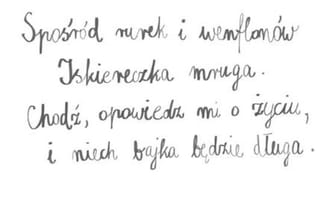 Spośród rurek i wenflonów
Iskiereczka mruga.
Chodź, opowiedz mi o życiu,
i niech bajka będzie długa.